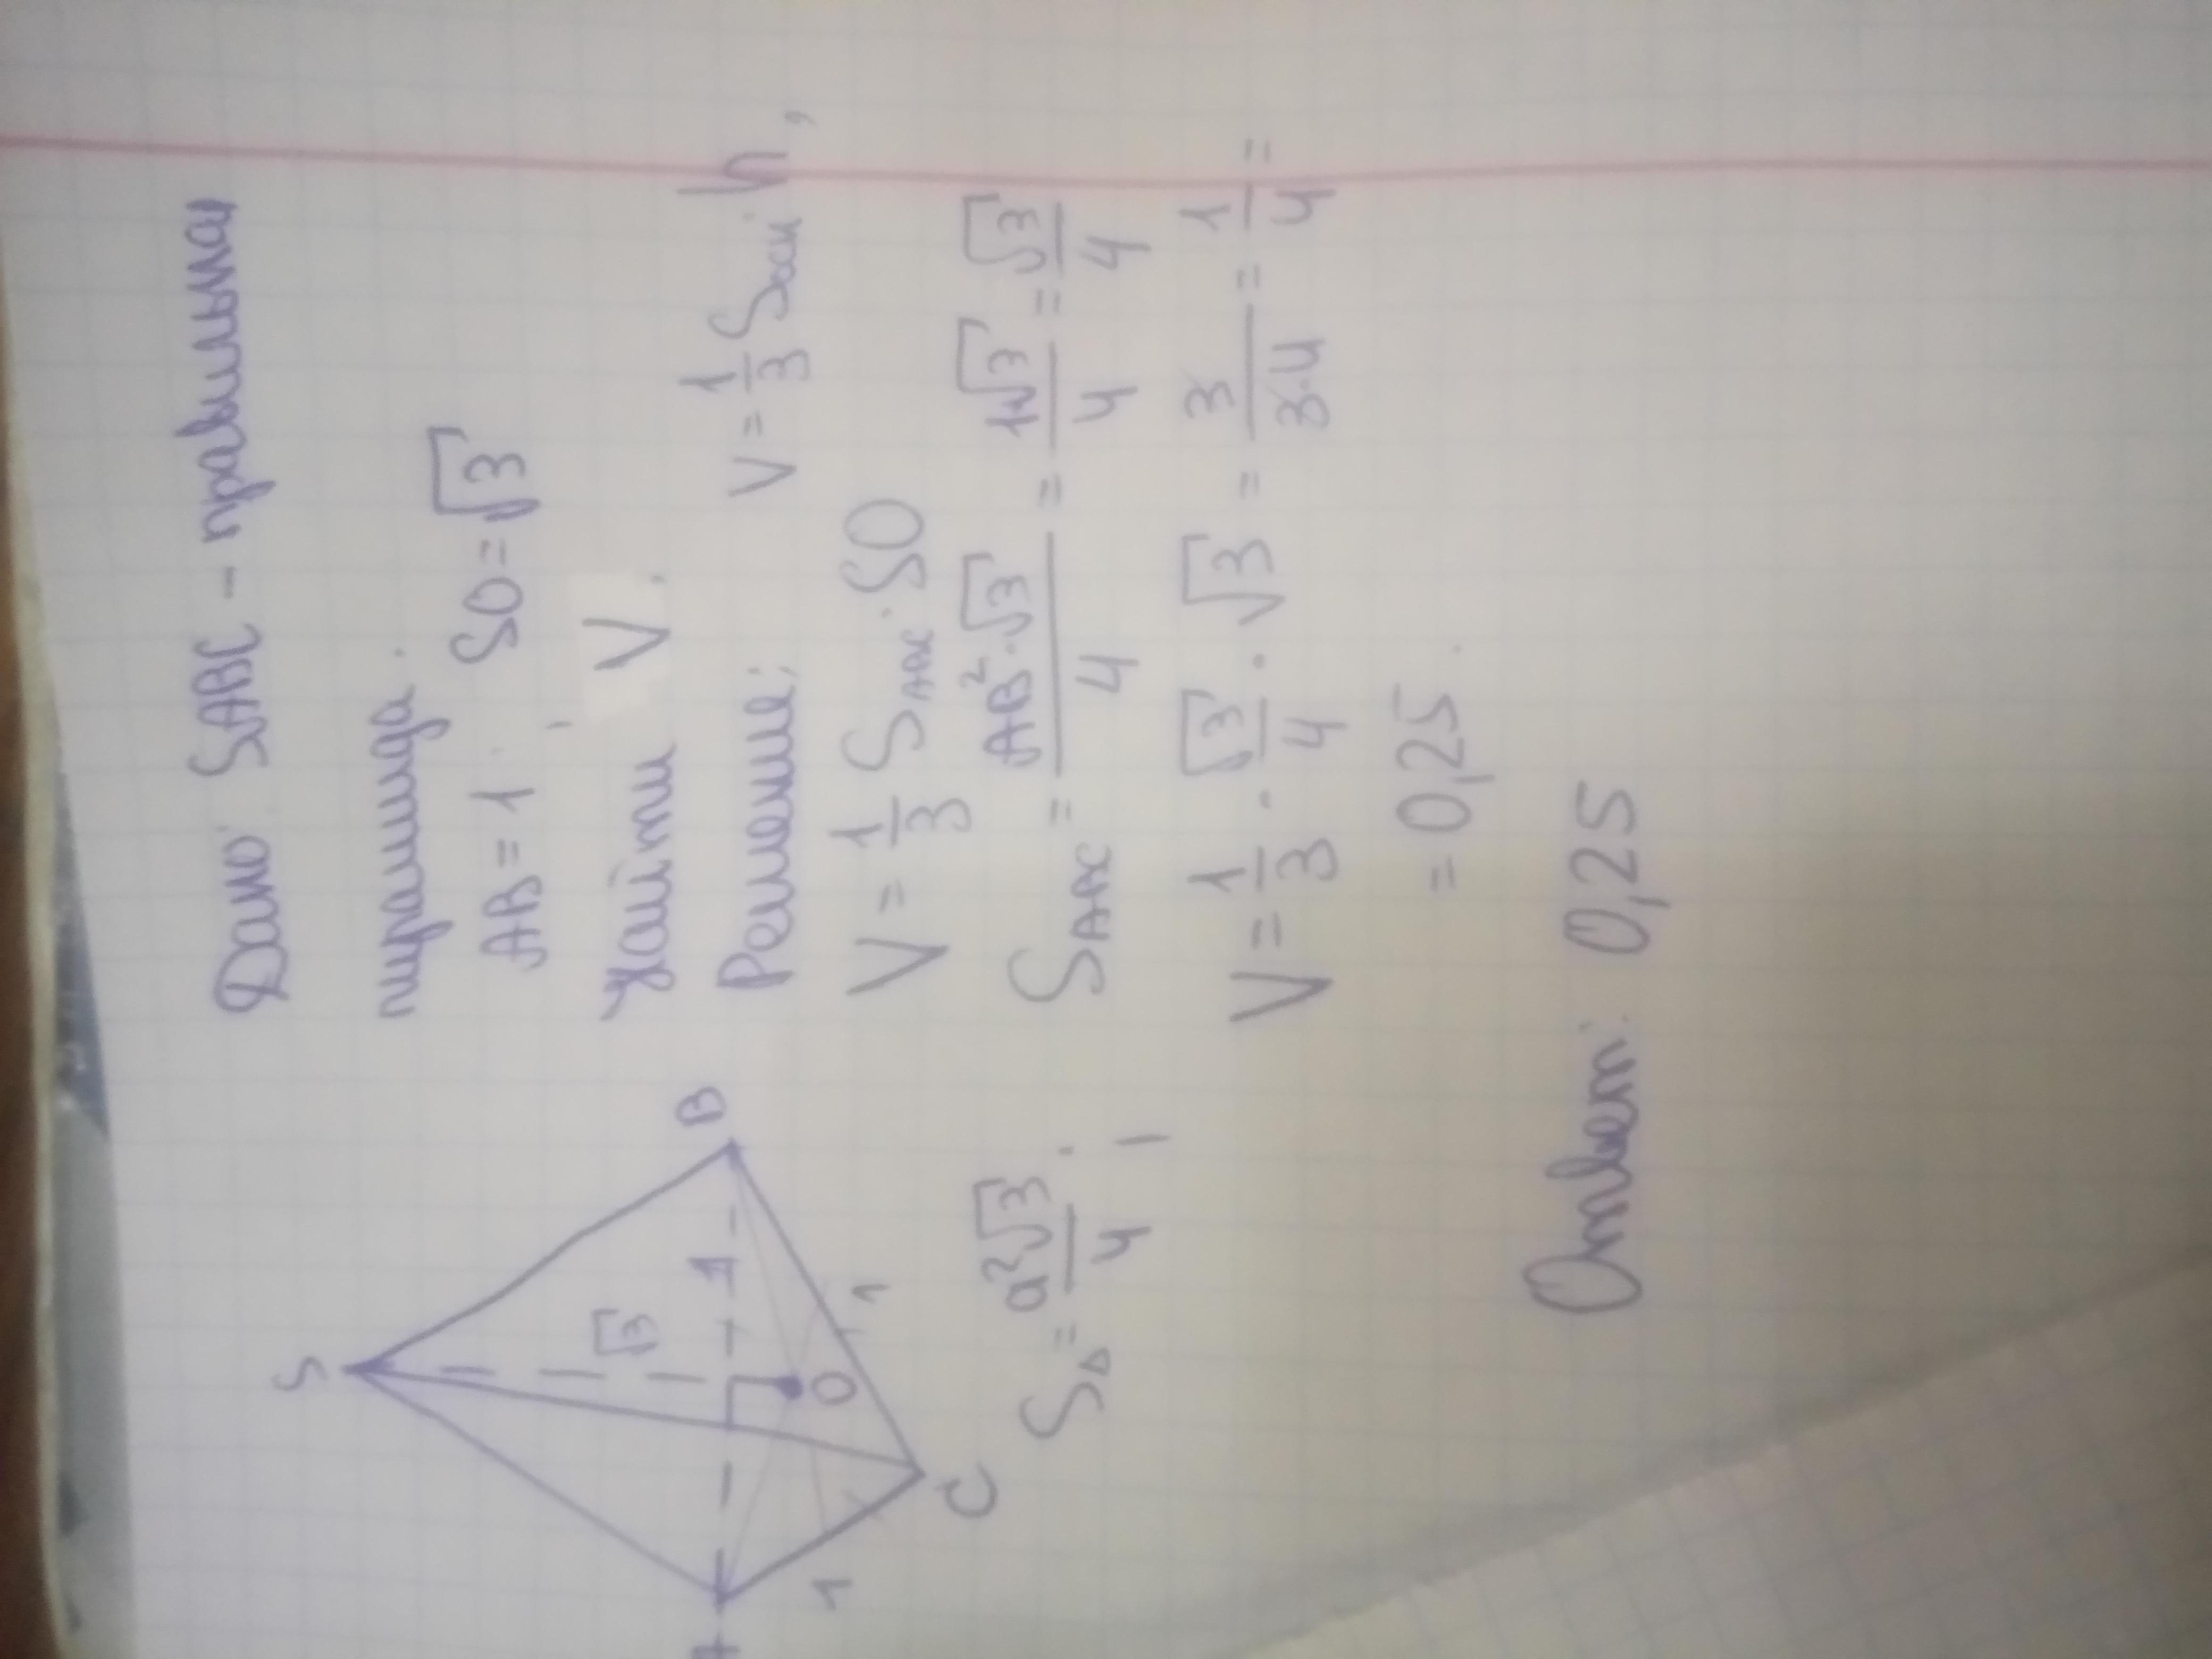 Дано: SABC - правильная
пирамида.
AB = 1, SO = √3
Найти V.
Решение: V = 1/3 Sосн · h,
V = 1/3 SABC · SO
SABC = AB² · √3 / 4 = 1√3 / 4 = √3 / 4
V = 1/3 · √3/4 · √3 = 3 / 3·4 = 1/4 =
= 0,25.
Ответ: 0,25
S
√3
1
A
B
O
1
1
C
S∆ = a²√3 / 4